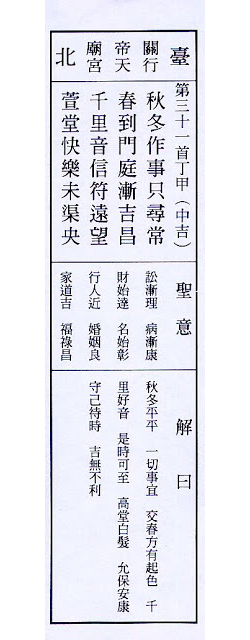 臺北
關帝廟
行天宮
第三十一首丁甲（中吉）
秋冬作事只尋常
春到門庭漸吉昌
千里音信符遠望
萱堂快樂未渠央
聖意
訟漸理 病漸康
財始達 名始彰
行人近 婚姻良
家道吉 福祿昌
解曰
秋冬平平 一切事宜 交春方有起色 千
里好音 是時可至 高堂白髮 允保安康
守己待時 吉無不利